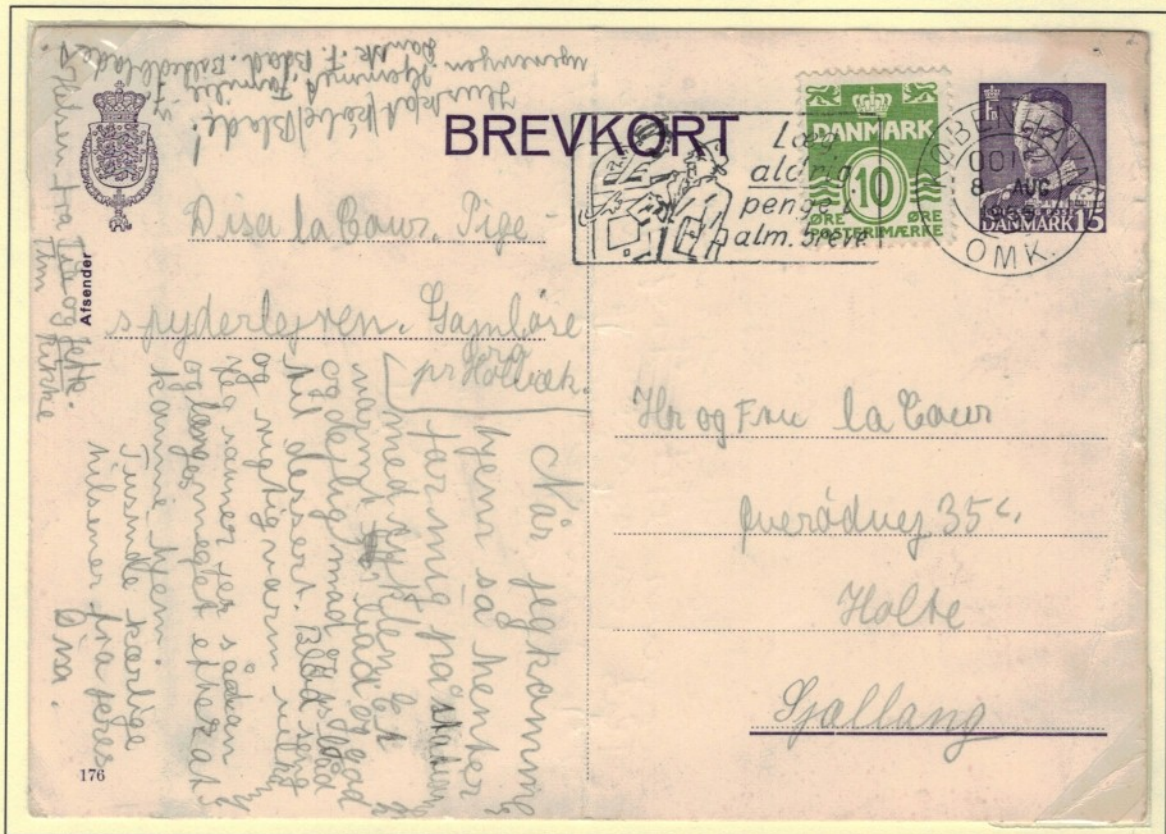 BREVKORT
Afsender
Disa la Cour. Pige-
spyderlejren. Gamløse
pr Holbæk.
Læg
aldrig
penge i
alm. breve
DANMARK
10
ØRE ØRE
POSTFRIMÆRKE
KØBENHAVN
OO
8 AUG
OMK.
DANMARK 15
Hr og Fru la Cour
Øverødvej 35 c.
Holte
Sjælland
Når jeg kommer
hjem så henter
far mig på
med cyklen. Et
varmt bad og
og dejlig mad
til dessert. Blød seng
og rigtig varm
Jeg savner jer sådan
og længes meget efter at
komme hjem.
Tusinde kærlige
hilsener fra jeres
Disa.
Hilsen fra og Jette.
Rikke
Blade!
Hjemmet Familie J.
Dansk F. Blad. Billedblad
176